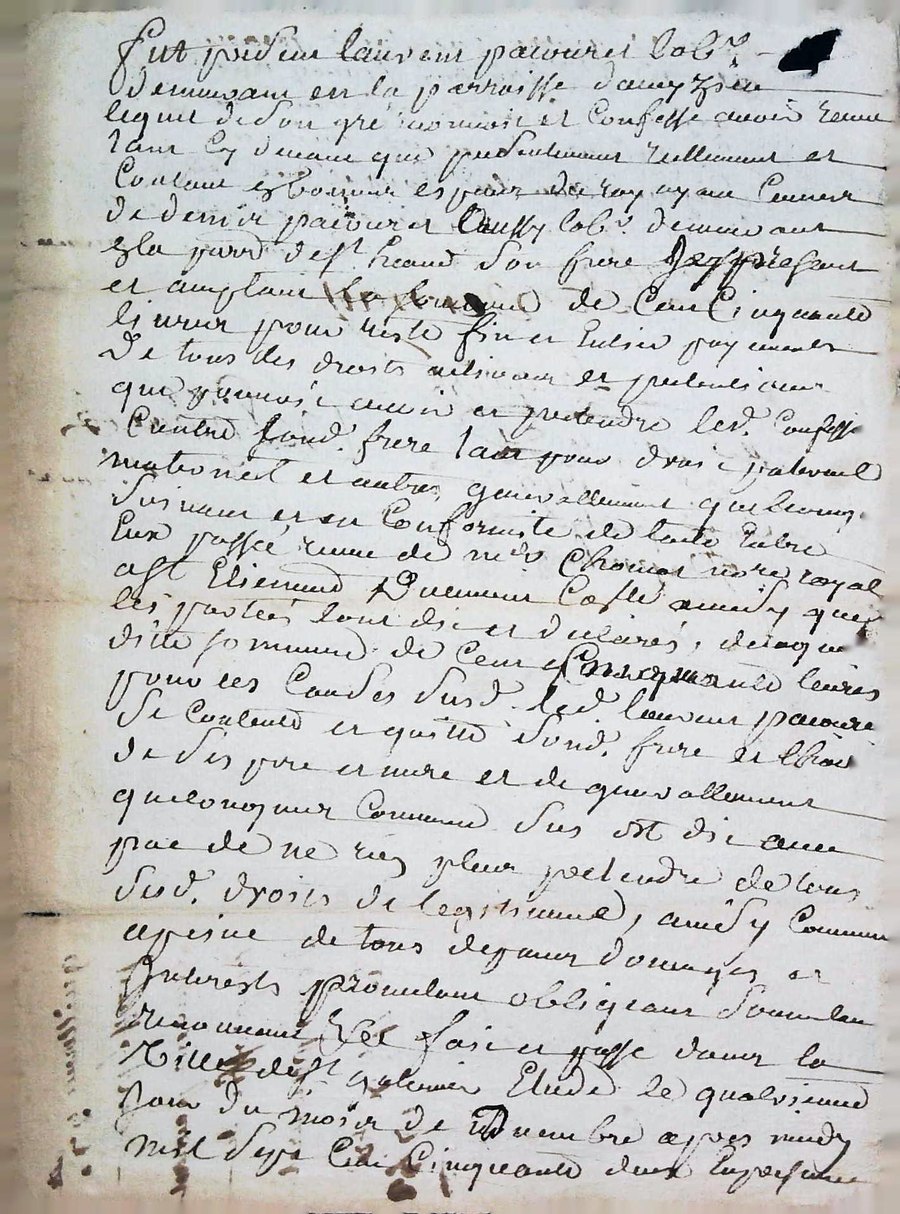 fut présent laurent pacouret lab.r
demeurant en la parroisse d'aveyzieu
lequel de son gré reconnoit et Confesse avoir receu
tant Cy devant que présentement réellement et
Contant en bonnes espèces du roy ayant Cours
de denis pacouret aussy lab.r demeurant
en la parr.e de s.t heand son frere Jcy présant
et acceptant la somme de Cent Cinquante
livres pour reste fin et entier payement
de tous des droits actions et pretentions
que pouvoit avoir et pretendre led. Confess
Contre sond. frere tant pour droit paternel
maternel et autres generallement quelconq.
suivant et en Conformité de lacte entre
Eux passé receu de m.e Chomat no.re royal
a s.t Etienne ainsy que
les parties lont dit et declarés, de laque
ditte somme de Cent Cinquante livres
pour les Causes susd. led. laurent pacouret
se Contente et quitte sond. frere et
de ses pere et mere et de generallement
quelconques Comme sus est dit avec
pac de ne rien plus pretendre de tous
susd. droits de legitime, ainsy Convenu
a peine de tous depens domages et
Interests promettant obligeant soumettant
renonceant &c fait et passé dans la
Ville de s.t galmier Etude le quatrieme
Jour du mois de novembre apres midy
mil sept Cent Cinquante deux En presence